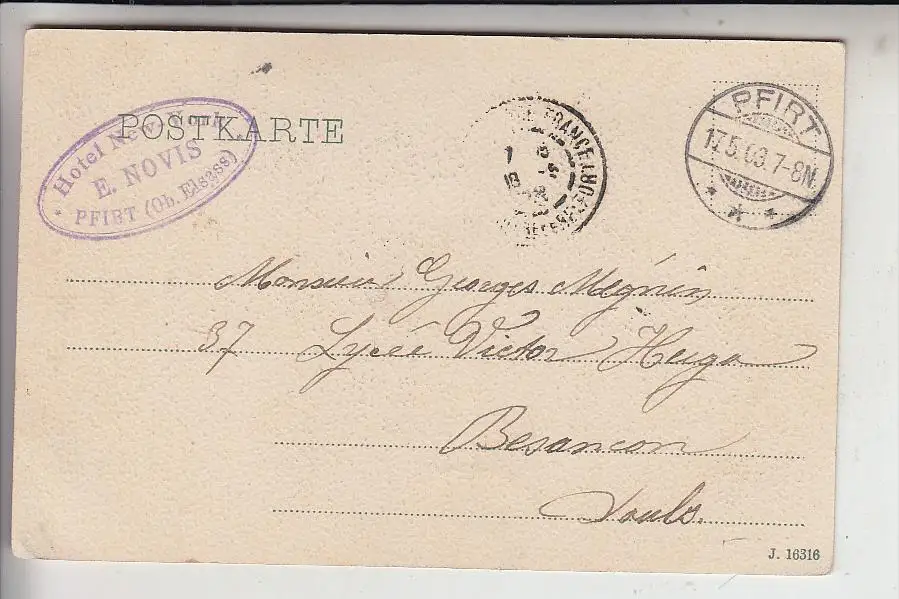 POSTKARTE
Hotel New York
E. NOVIS
* PFIRT (Ob. Elsass)
FRANCE
PFIRT
17.5.03.7-8N.
Monsieur Georges Mégnin
37 Lycée Victor Hugo
Besancon
Doubs.
J. 16316